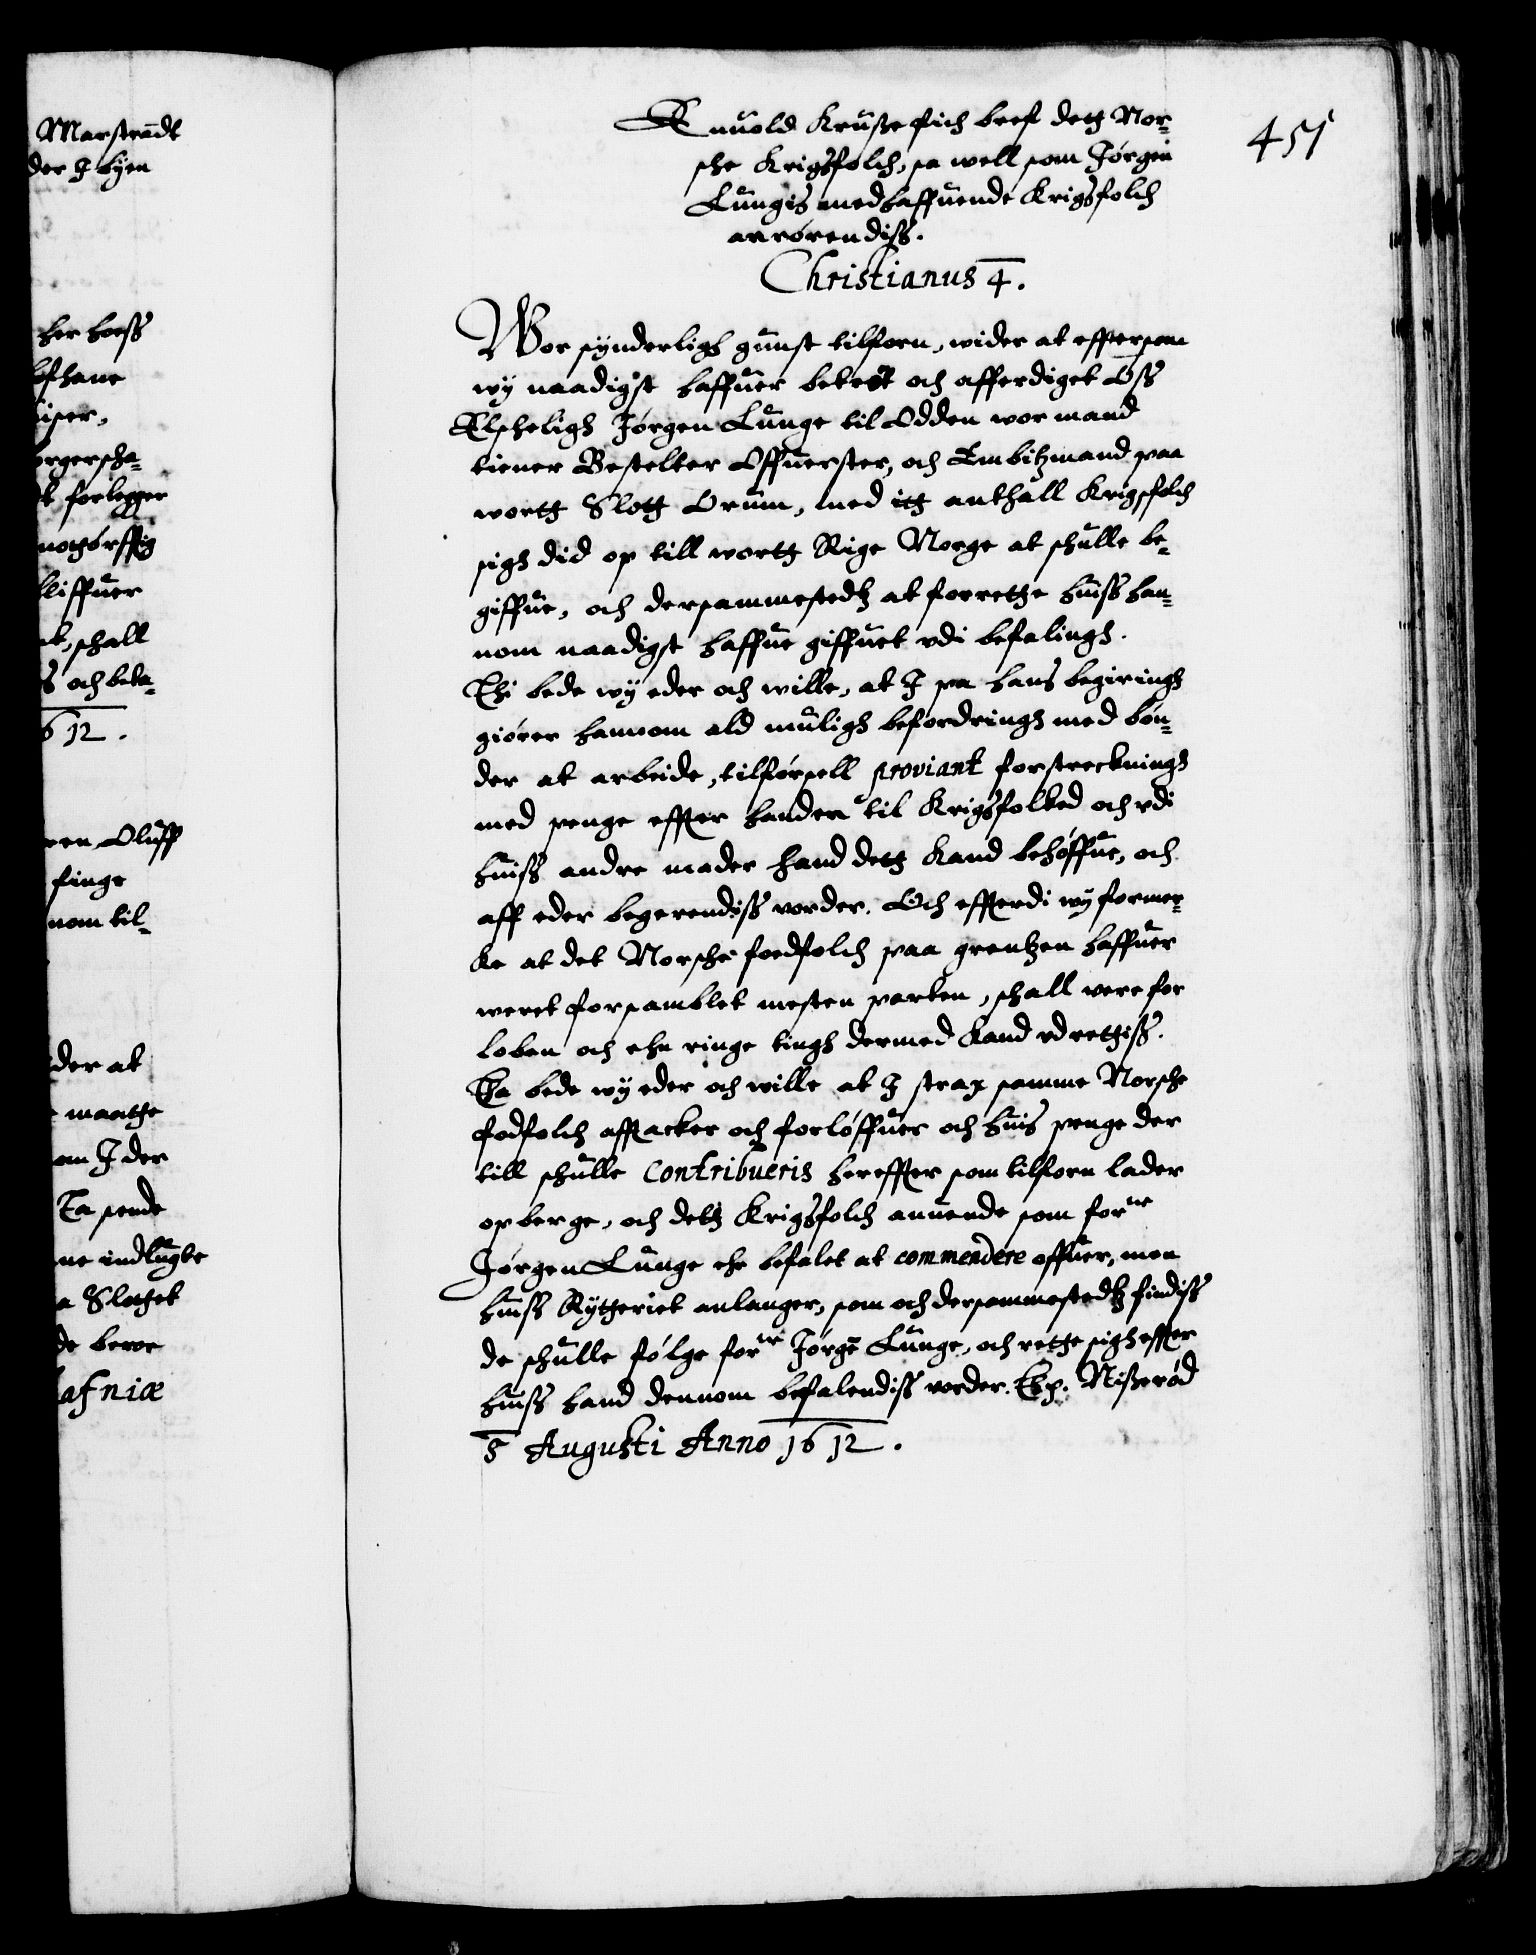 Marstradt
der I byen
her hoeß
forlegger
nottørfftig
bliffuer
schall
och beta-
612.
Oluff
finge
nom til-
der at
maatthe
om I der
Ta sende
indlugte
Slottet
berve
afniæ
451
Enuold Kruße fich breff dett Nor-
sche Krigsfolch, sa well som Jørgen
Lungis medhaffuende Krigsfolch
anrørendiß.
Christianus 4.
Wor synderligh gunst tilforn, wider at effterson
wy naadigst haffuer betest och afferdiget Oß
Elscheligh Jørgen Lunge til Odden wor mand
tiener Bestelter Offuerster, och Embitzmand paa
wortt Slott Ørum, med itt anthall Krigsfolch
sigh did op till wortt Rige Norge at schulle be-
giffue, och dersammestedtz at forrette huiß han-
nom naadigst haffue giffuet vdi befalingh.
Thi bede wy eder och wille, at I pa hans begiringh
giører hannom ald muligh befordringh med bøn-
der at arbeide, tilførsell proviant forstrecknings
med penge effter handen til Krigsfolked och vdi
huiß andre mader hand dett Kand behøffue, och
aff eder begerendiß vorder. Och effterdi wy former-
ke at det Norsche foedfolch paa grentzen haffuer
weret forsamblet mesten parten, schall vere for
loben och ehn ringe tingh dermed Kand vdrettiß.
Ta bede wy eder och wille at I strax samme Norsche
fodfolch afftacker och forløffuer och huis penge der
till schulle Contribueris hereffter som tilforn lader
opberge, och dettz Krigsfolch anuende som forne
Jørgen Lunge ehr befalet at commendere offuer, men
huiß Rytteriet anlanger, som och dersammestedtz findiß
de schulle følge forne Jørgē Lunge, och rette sigh effter
huiß hand dennom befalendiß vorder. Exp. Nißerød
8 Augusti Anno 1612.